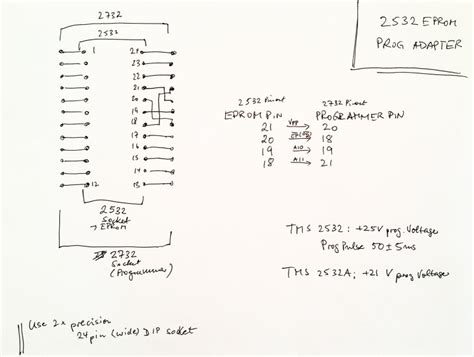 2532 EPROM
PROG ADAPTER
2732
2532
1
24
23
22
21
20
19
18
17
16
15
14
12
13
2532
Socket
→ EPROM
2732
Socket
(Programmer)
2532 Pinout
2732 Pinout
EPROM PIN
PROGRAMMER PIN
21 Vpp → 20
20 → 18
19 A10 → 19
18 A11 → 21
TMS 2532: +25V prog. Voltage
Prog Pulse 50 ± 5ms
TMS 2532A: +21 V prog Voltage
Use 2x precision
24 pin (wide) DIP socket